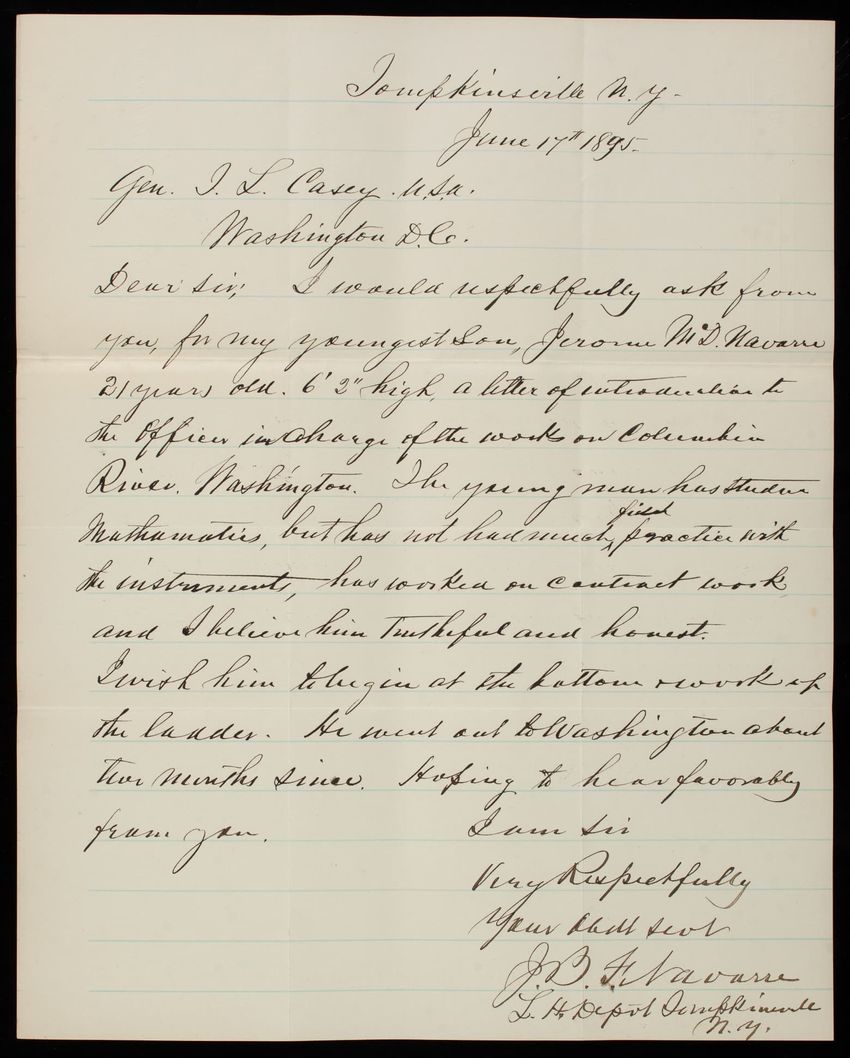 Tompkinsville N.Y.
June 17th 1895.
Gen. T. L. Casey. U.S.A.
Washington D.C.
Dear Sir; I would respectfully ask from
you, for my youngest Son, Jerome McD. Navarre
21 years old. 6' 2" high, a letter of introduction to
the Officer in charge of the works on Columbia
River. Washington. The young man has studied
Mathamatics, but has not had much field practice with
the instruments, has worked on contract work,
and I believe him truthful and honest.
I wish him to begin at the bottom & work up
the ladder. He went out to Washington about
two months since. Hoping to hear favorably
from you. I am Sir
Very Respectfully
Your Obdt Servt
J. B. F. Navarre
L. H. Depot Tompkinsville
N.Y.